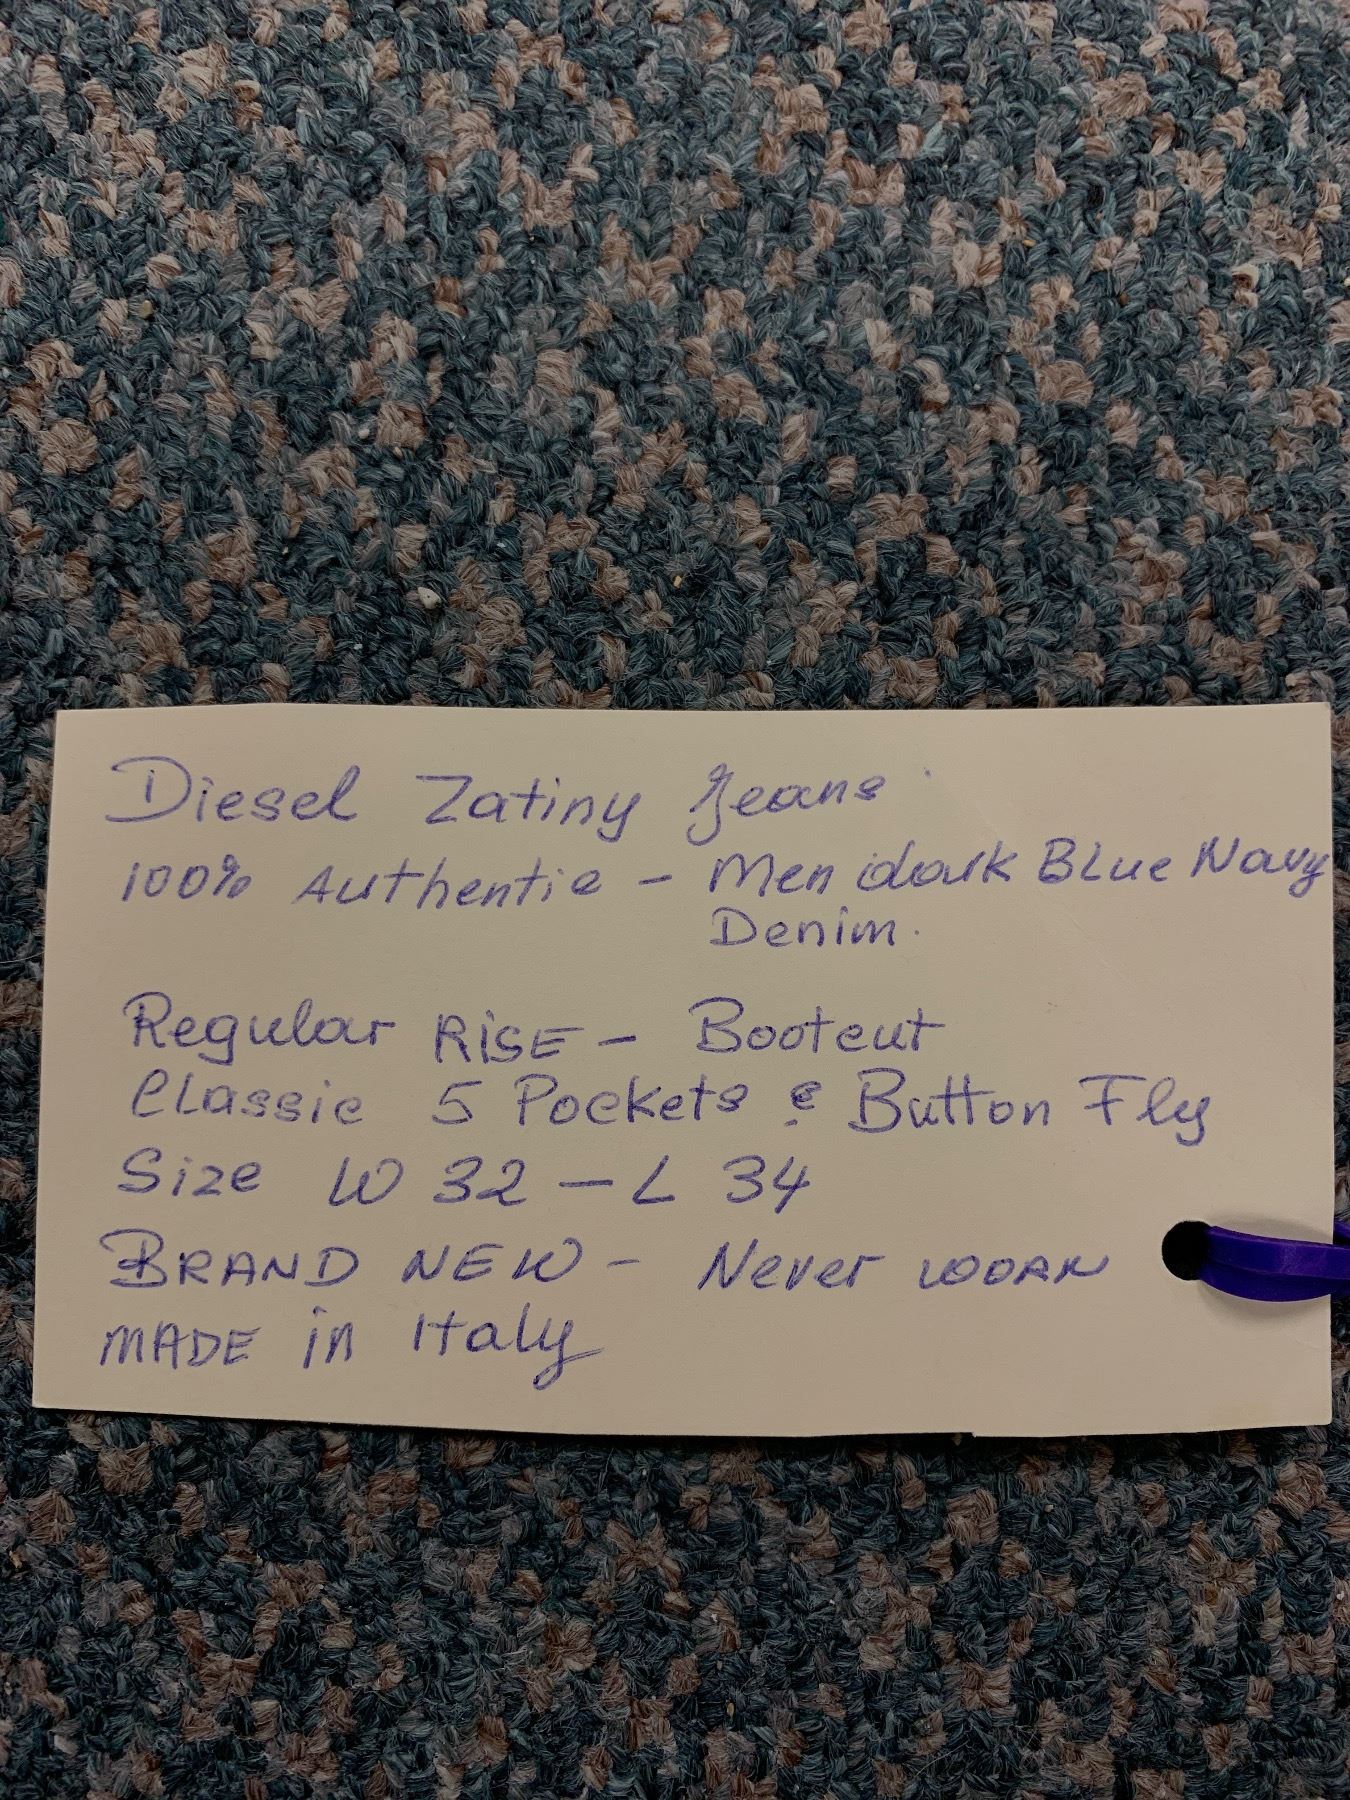 Diesel Zatiny Jeans
100% Authentic - Men dark BLue Navy
Denim.
Regular RiSE - Bootcut
CLassic 5 Pockets & Button Fly
Size W 32 - L 34
BRAND NEW - Never WORN
MADE in Italy